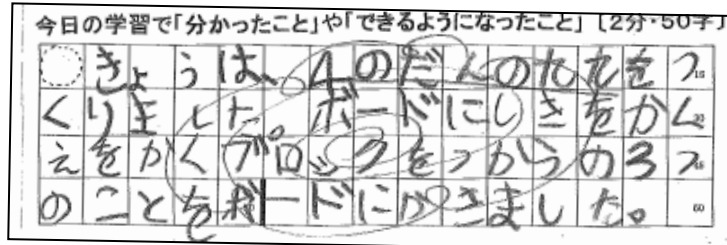 今日の学習で「分かったこと」や「できるようになったこと」〔2分・50字〕
きょうは、4のだんのたたをつ
くりました。ボードにしきをかく
えをかくブロックをつかうの3つ
のことをボードにかきました。